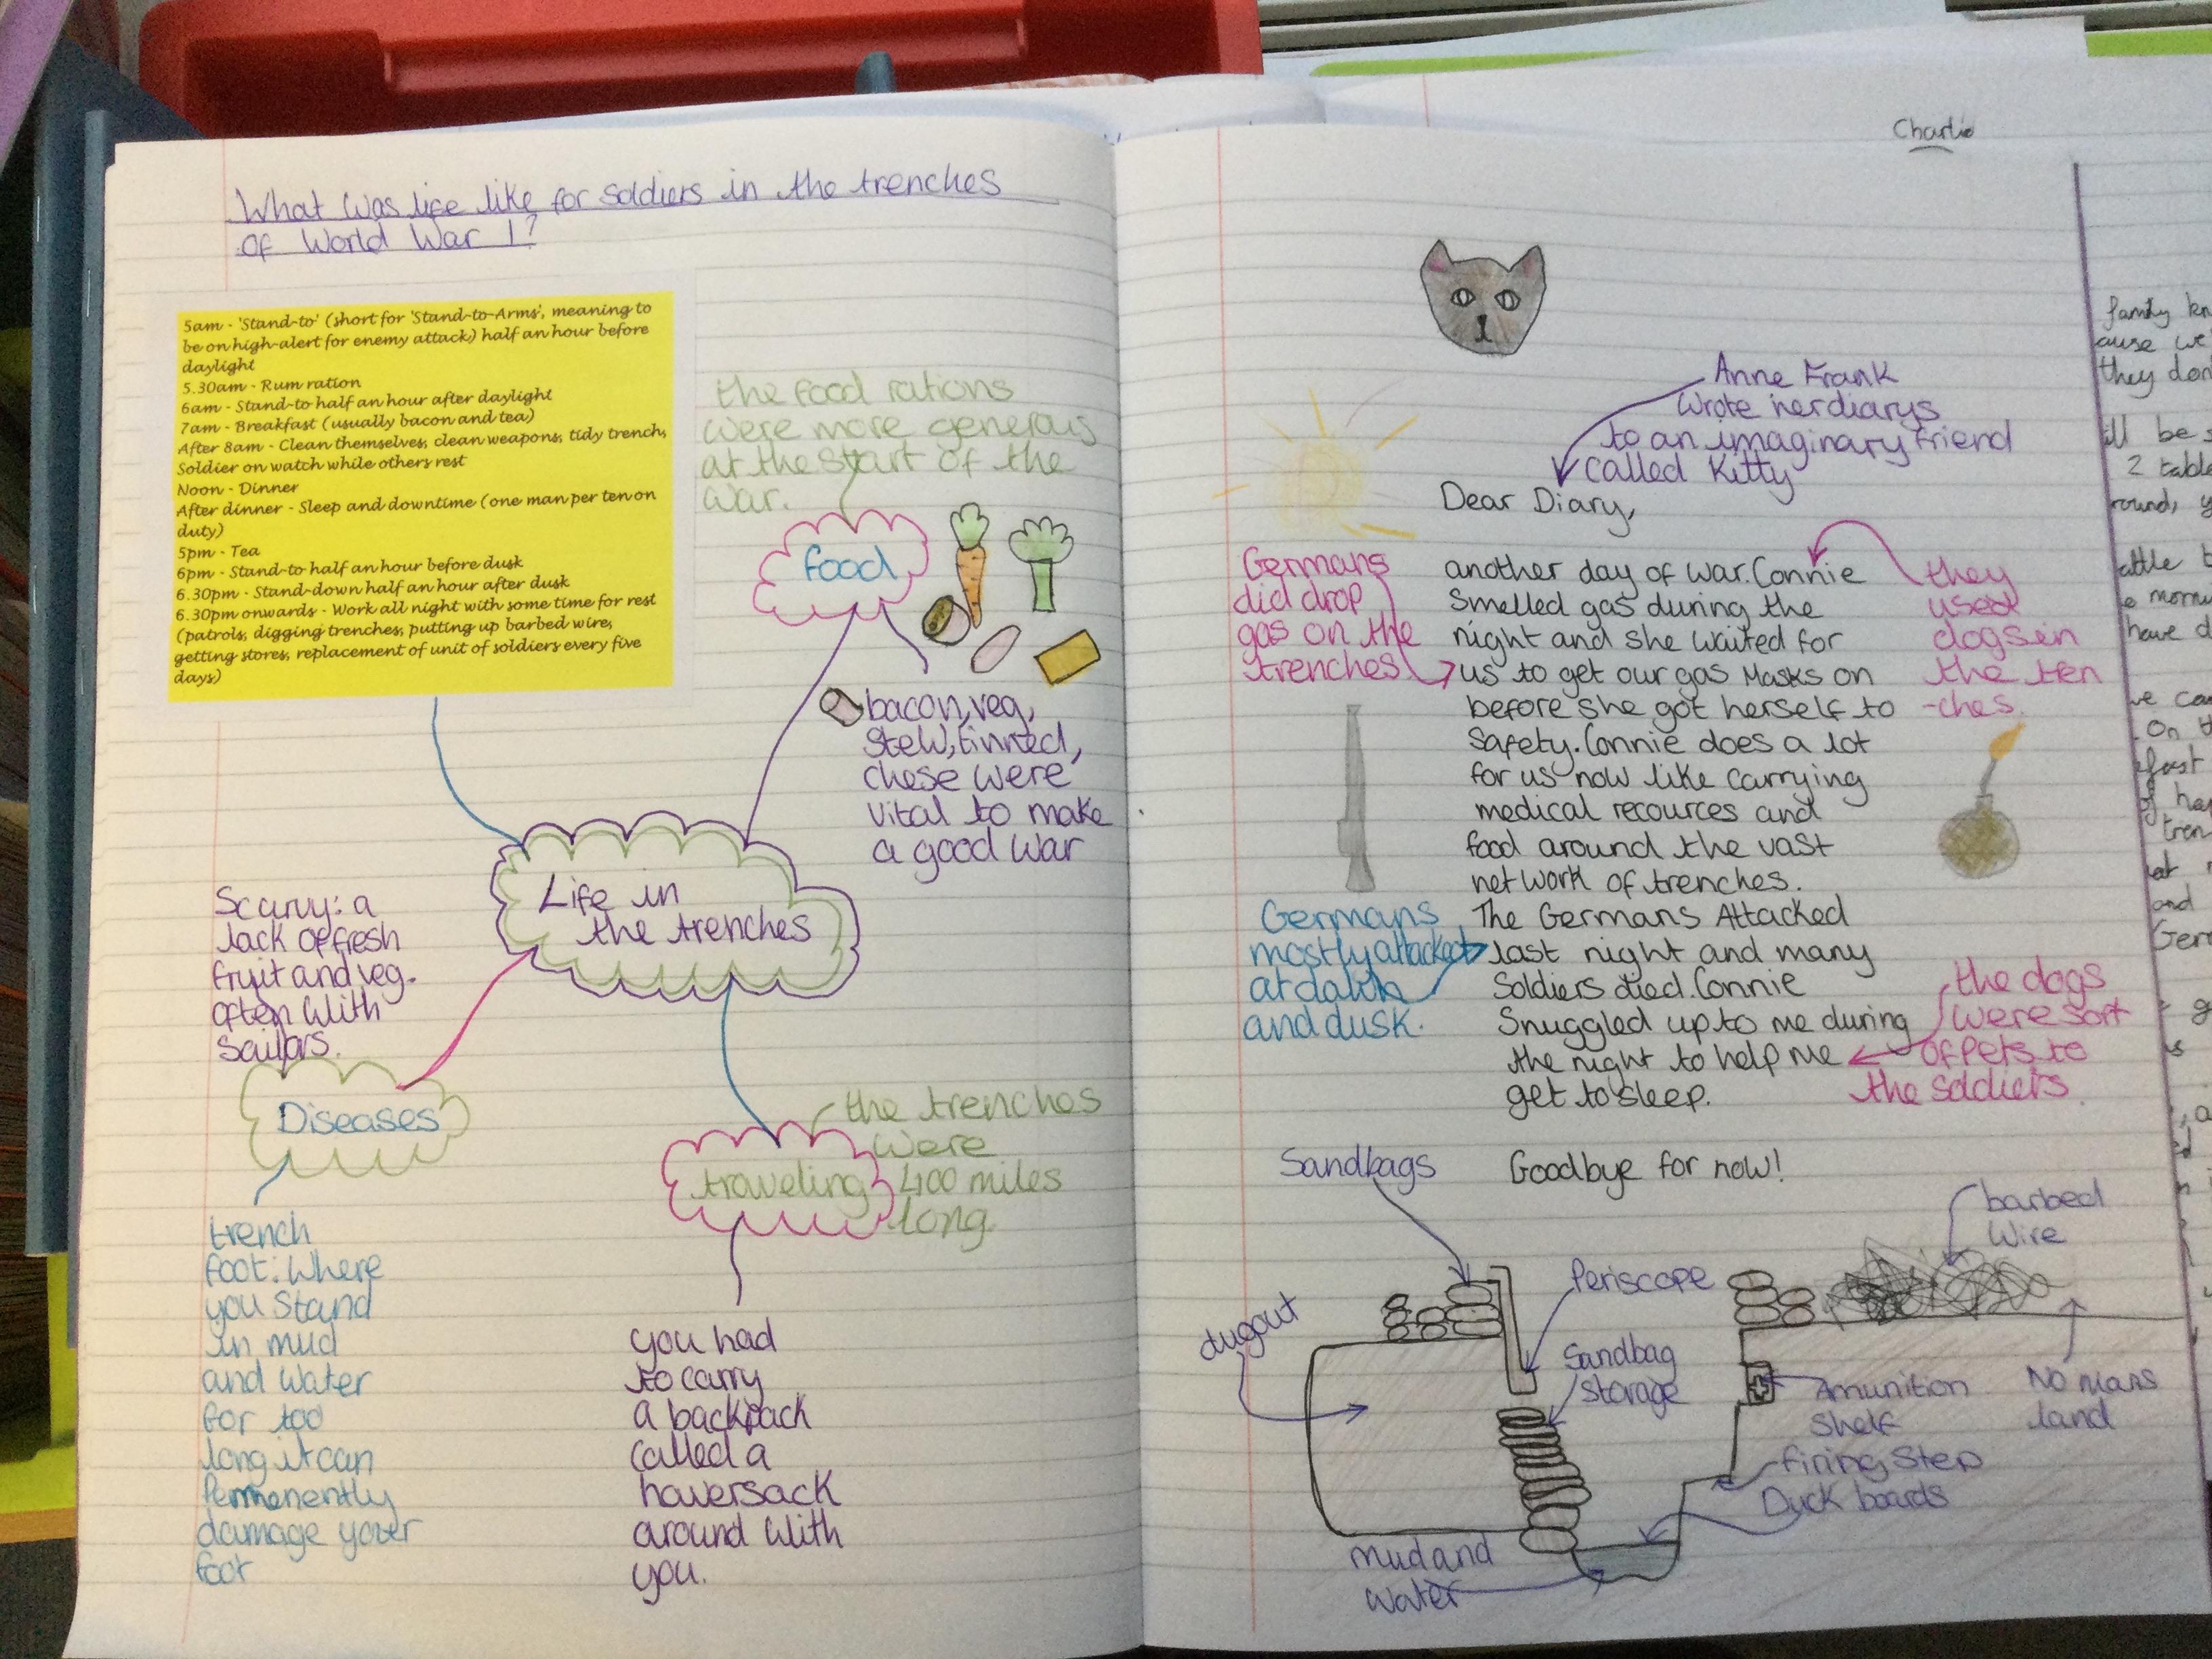 What was life like for soldiers in the trenches
of World War 1?
5am - 'Stand-to' (short for 'Stand-to-Arms', meaning to
be on high-alert for enemy attack) half an hour before
daylight
5.30am - Rum ration
6am - Stand-to half an hour after daylight
7am - Breakfast (usually bacon and tea)
After 8am - Clean themselves, clean weapons, tidy trench,
Soldier on watch while others rest
Noon - Dinner
After dinner - Sleep and downtime (one man per ten on
duty)
5pm - Tea
6pm - Stand-to half an hour before dusk
6.30pm - Stand-down half an hour after dusk
6.30pm onwards - Work all night with some time for rest
(patrols, digging trenches, putting up barbed wire,
getting stores, replacement of unit of soldiers every five
days)
the food rations
were more generous
at the start of the
war.
food
bacon, veg,
stew, tinned,
chese were
vital to make
a good war
Life in
the trenches
Scurvy: a
lack of fresh
fruit and veg.
often with
sailors.
Diseases
trench
foot: Where
you stand
in mud
and water
for too
long it can
permenently
damage your
foot
the trenches
were
400 miles
long.
traveling
you had
to carry
a backpack
called a
haversack
around with
you.
Charlie
Anne Frank
wrote her diarys
to an imaginary friend
called Kitty
Dear Diary,
Germans
did drop
gas on the
trenches
another day of war. Connie
smelled gas during the
night and she waited for
us to get our gas masks on
before she got herself to
safety. Connie does a lot
for us now like carrying
medical recources and
food around the vast
network of trenches.
they
used
dogs in
the tren
-ches.
Germans
mostly attacked
at dawn
and dusk.
The Germans Attacked
last night and many
soldiers died. Connie
snuggled up to me during
the night to help me
get to sleep.
the dogs
were sort
of pets to
the soldiers.
Goodbye for now!
Sandbags
barbed
wire
Periscope
dugout
Sandbag
storage
Amunition
shelf
No mans
land
firing step
Duck boards
mud and
water
family
they
be
2
round,
have
On
and